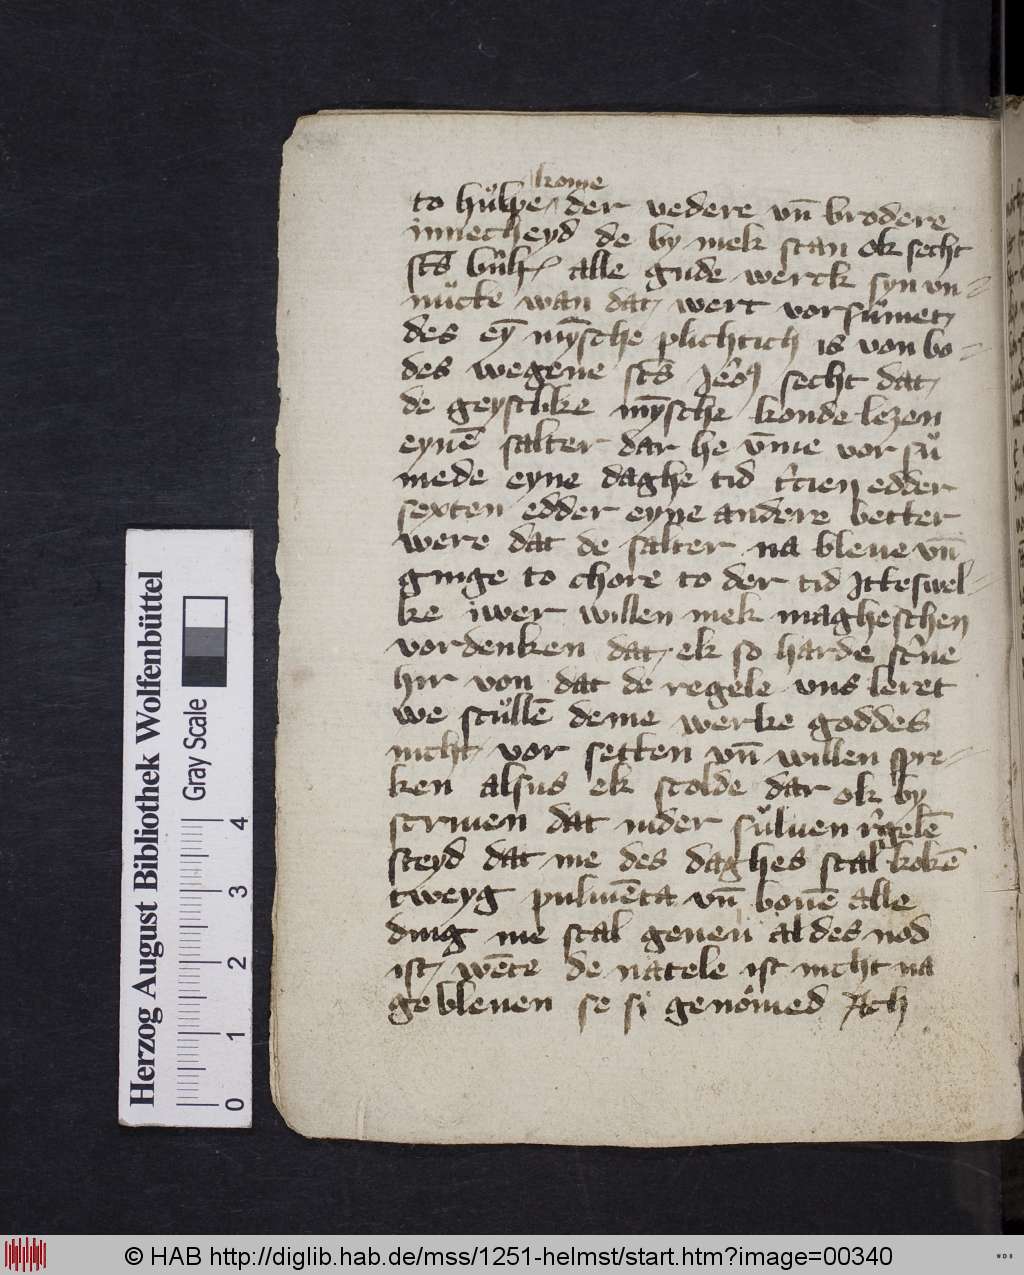 kome
to hůlpe der vedere vn̄ brodere
innecheyd de by mek stan ok secht
sc̄s alle gude werck syn vn
nůtte wan dat wert vorsůmet
des ey̅ my̅sche plichtich is von bo
des wegene sc̄s secht dat
de geystlike my̅sche konde lezen
eyne̅ salter dar he v̅me vor sů
mede eyne daghe tid edder
sexten edder eyne andere better
were dat de salter na bleue vn̄
ginge to chore to der tid Itteswel
ke iwer willen mek magheschen
vordenken dat ek so harde
hir von dat de regele vns leret
we scůlle̅ deme werke goddes
nicht vor setten vn̄ willen spre
ken alsus ek scolde dar ok by
scriuen dat inder sůluen
steyd dat me des daghes scal koke̅
tweyg pulme̅ta vn̄ boue̅ alle
ding me scal geuen al des nod
ist we̅te de natele ist nicht na
gebleuen se si genômed Ach
Herzog August Bibliothek Wolfenbüttel
Gray Scale
0 1 2 3 4
© HAB http://diglib.hab.de/mss/1251-helmst/start.htm?image=00340